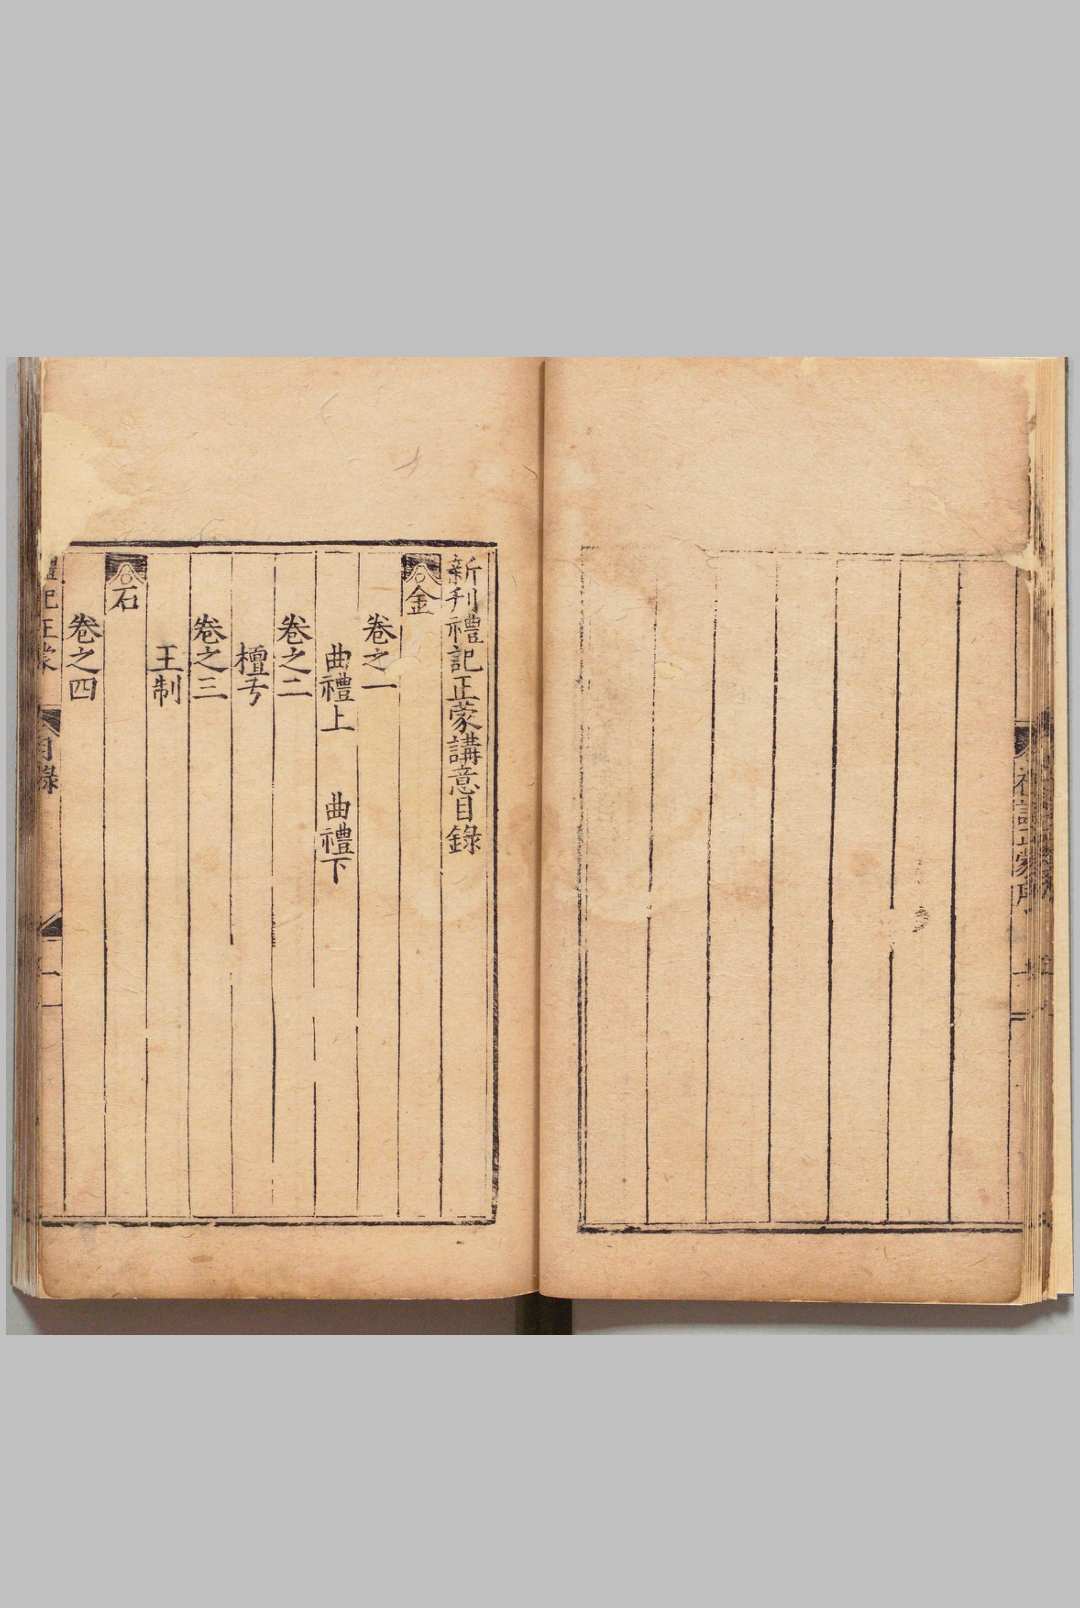 新刊禮記正蒙講意目錄
金
卷之一
曲禮上　曲禮下
卷之二
檀弓
卷之三
王制
石
卷之四
目錄